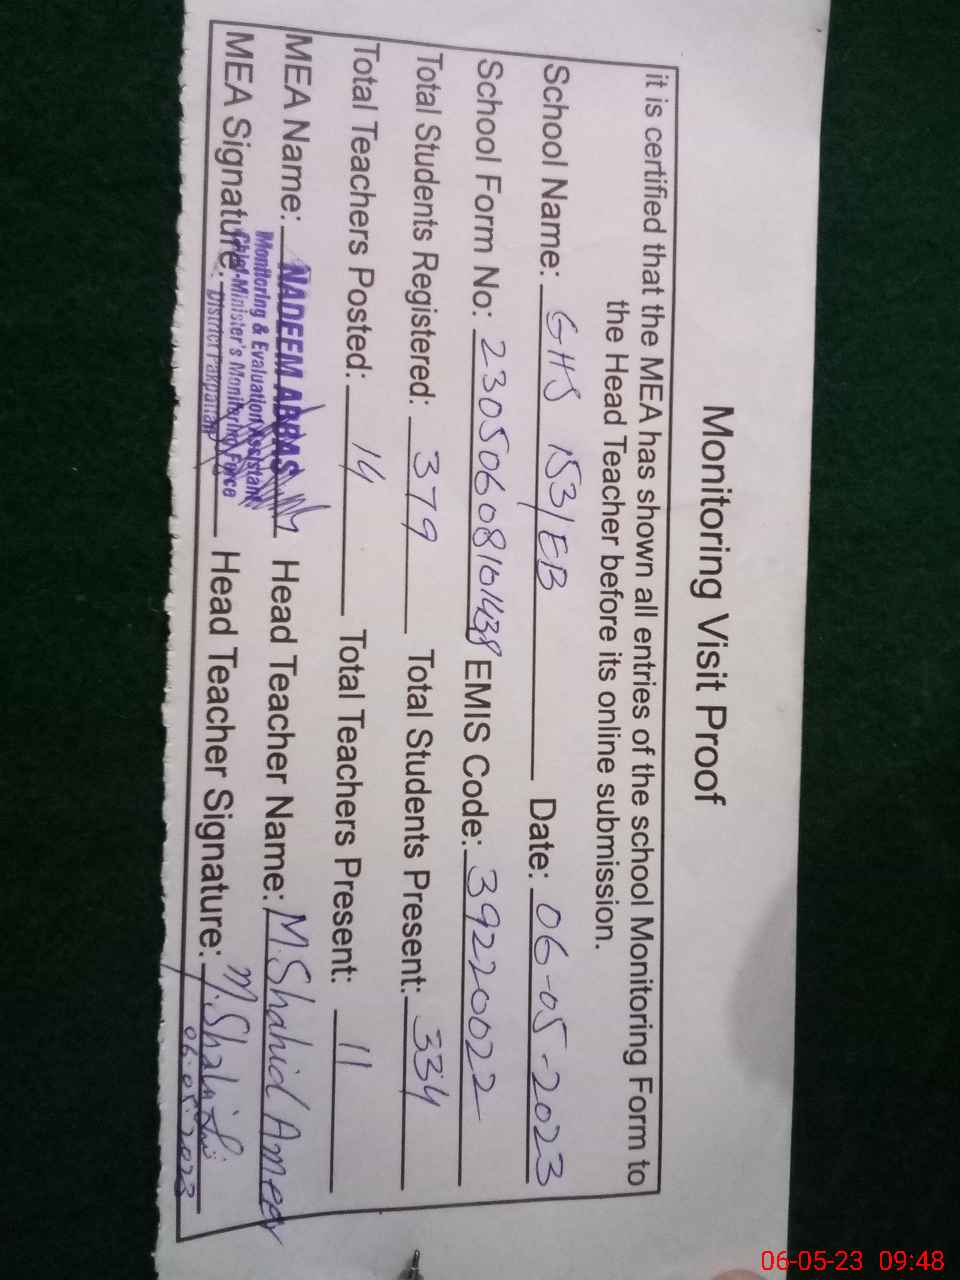 Monitoring Visit Proof
it is certified that the MEA has shown all entries of the school Monitoring Form to
the Head Teacher before its online submission.
School Name: GHS 153/EB Date: 06-05-2023
School Form No: 23050608101438 EMIS Code: 39220022
Total Students Registered: 379 Total Students Present: 334
Total Teachers Posted: 14 Total Teachers Present: 11
MEA Name: NADEEM ABBAS Head Teacher Name: M. Shahid Ameer
Monitoring & Evaluation Assistant
Chief Minister's Monitoring Force
MEA Signature: District Pakpattan Head Teacher Signature: M. Shahid
06.05.2023
06-05-23 09:48